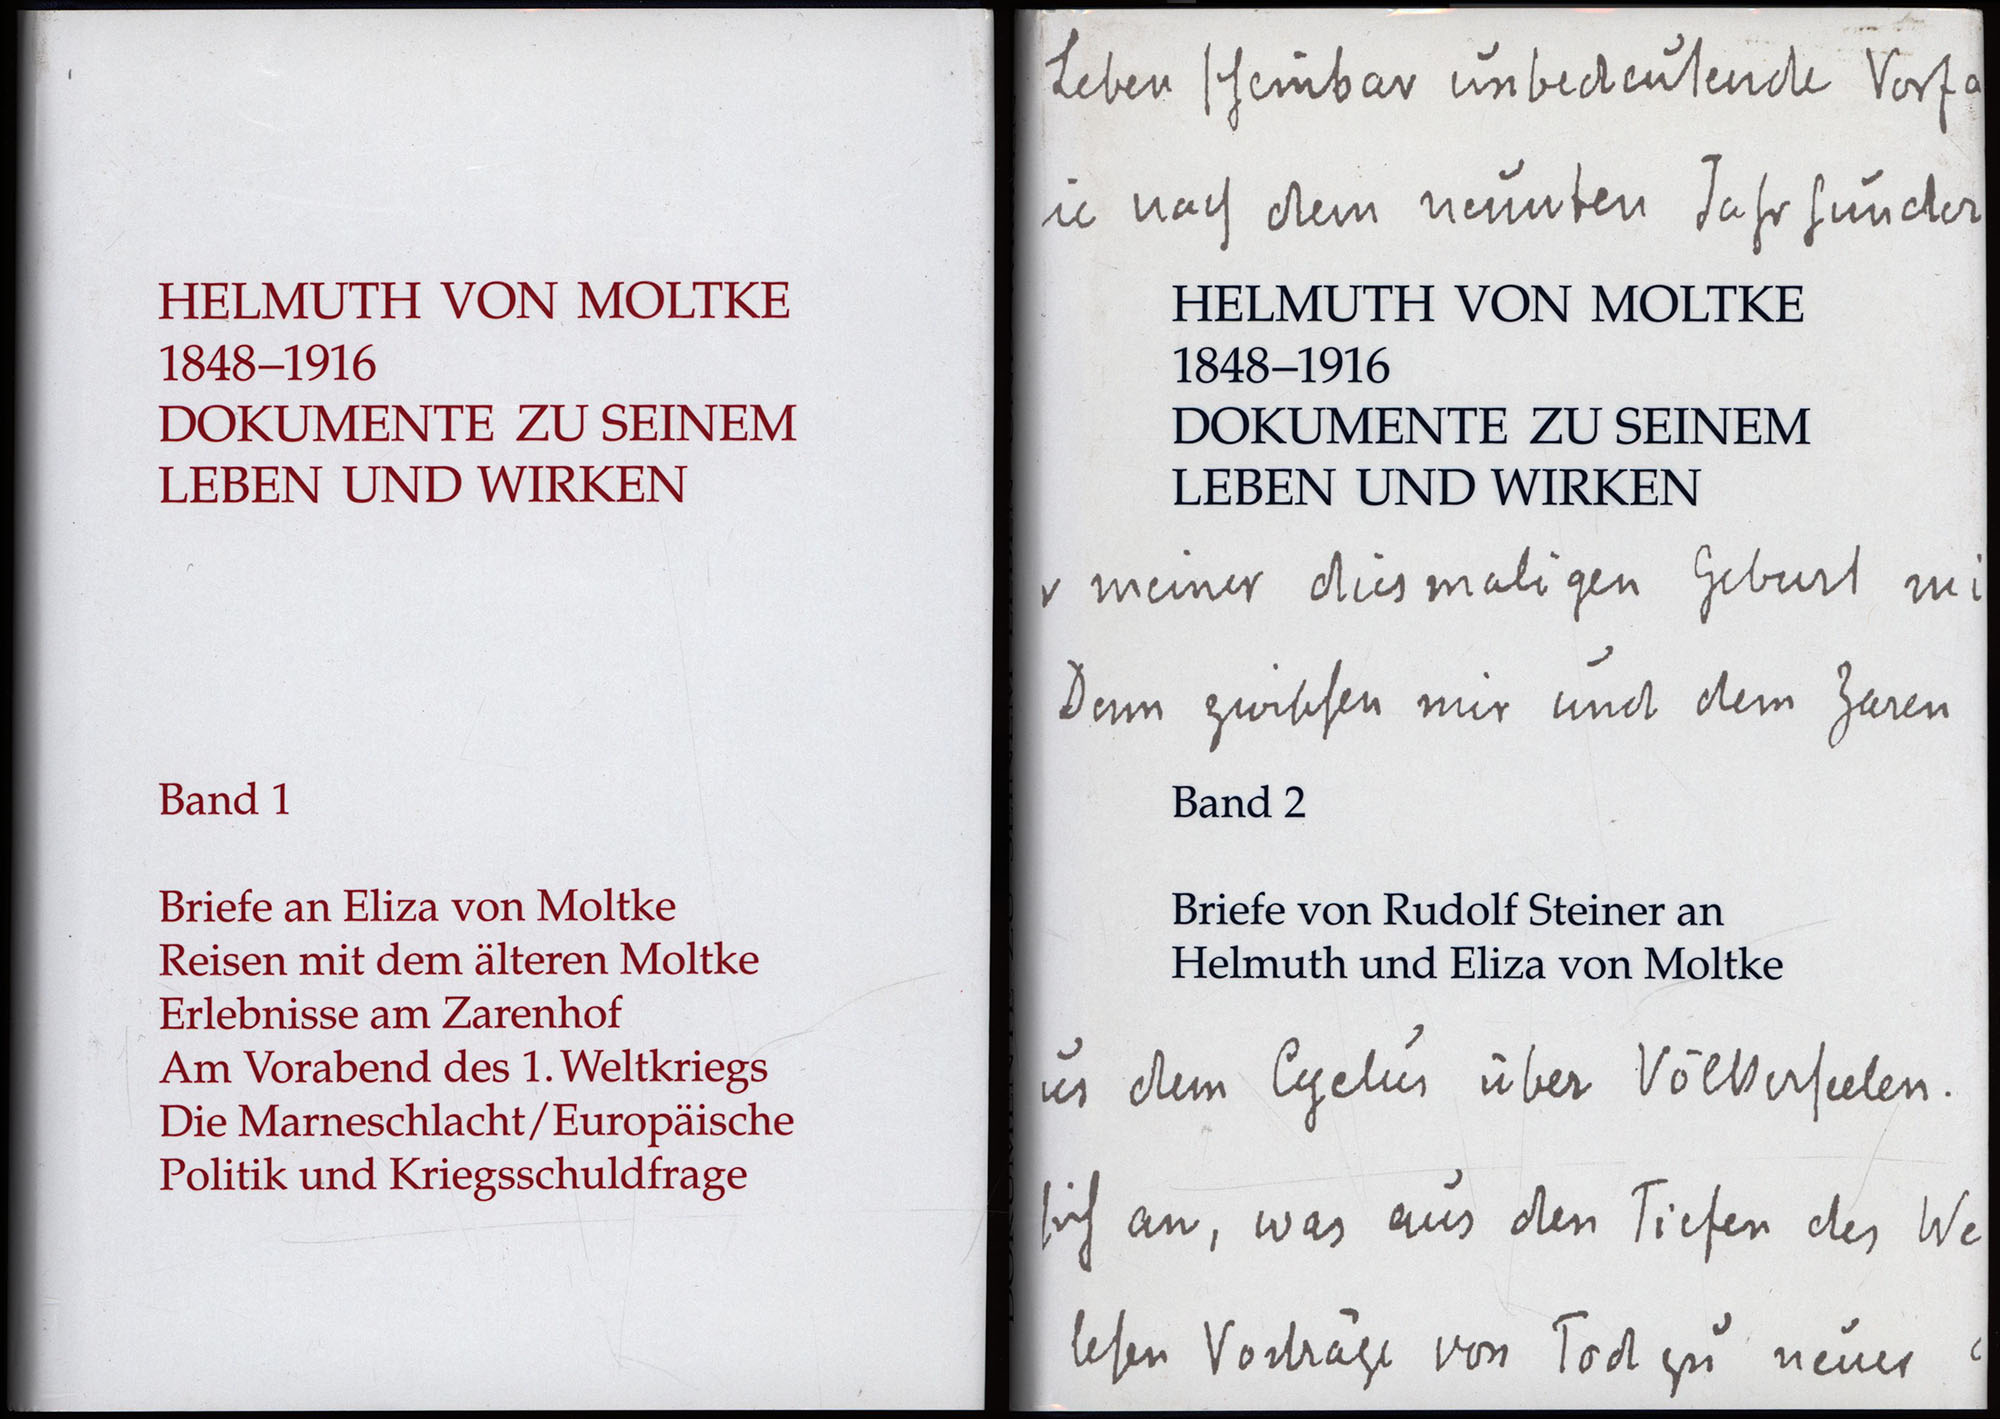 HELMUTH VON MOLTKE
1848–1916
DOKUMENTE ZU SEINEM
LEBEN UND WIRKEN
Band 1
Briefe an Eliza von Moltke
Reisen mit dem älteren Moltke
Erlebnisse am Zarenhof
Am Vorabend des 1. Weltkriegs
Die Marneschlacht/Europäische
Politik und Kriegsschuldfrage
Leben scheinbar unbedeutende Vorfa
ie nach dem neunten Jahrhunder
HELMUTH VON MOLTKE
1848–1916
DOKUMENTE ZU SEINEM
LEBEN UND WIRKEN
r meiner diesmaligen Geburt mi
Denn zwischen mir und dem Zaren
Band 2
Briefe von Rudolf Steiner an
Helmuth und Eliza von Moltke
us dem Cyclus über Völkerseelen.
sich an, was aus den Tiefen des We
lesen Vorträge von Tod zu neues